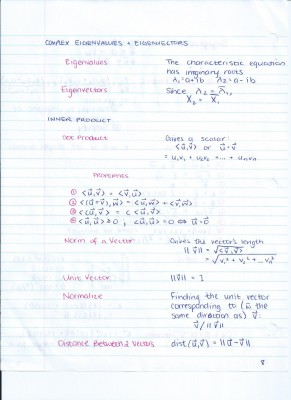 COMPLEX EIGENVALUES + EIGENVECTORS
Eigenvalues The characteristic equation
has imaginary roots
λ₁ = a+ib λ₂ = a-ib
Eigenvectors Since λ₂ = λ̄₁,
X₂ = X̄₁
INNER PRODUCT
Dot Product Gives a scalar:
<u⃗,v⃗> or u⃗·v⃗
= u₁v₁ + u₂v₂ + ... + uₙvₙ
PROPERTIES
① <u⃗,v⃗> = <v⃗,u⃗>
② <(u⃗+v⃗),w⃗> = <u⃗,w⃗> + <v⃗,w⃗>
③ <cu⃗,v⃗> = c<u⃗,v⃗>
④ <u⃗,u⃗> ≥ 0 ; <u⃗,u⃗> = 0 ⇔ u⃗=0⃗
Norm of a Vector Gives the vector's length
||v⃗|| = √<v⃗,v⃗>
= √v₁² + v₂² + ... vₙ²
Unit Vector ||v⃗|| = 1
Normalize Finding the unit vector
corresponding to (in the
same direction as) v⃗:
v⃗/||v⃗||
Distance Between 2 Vectors dist(u⃗,v⃗) = ||u⃗-v⃗||